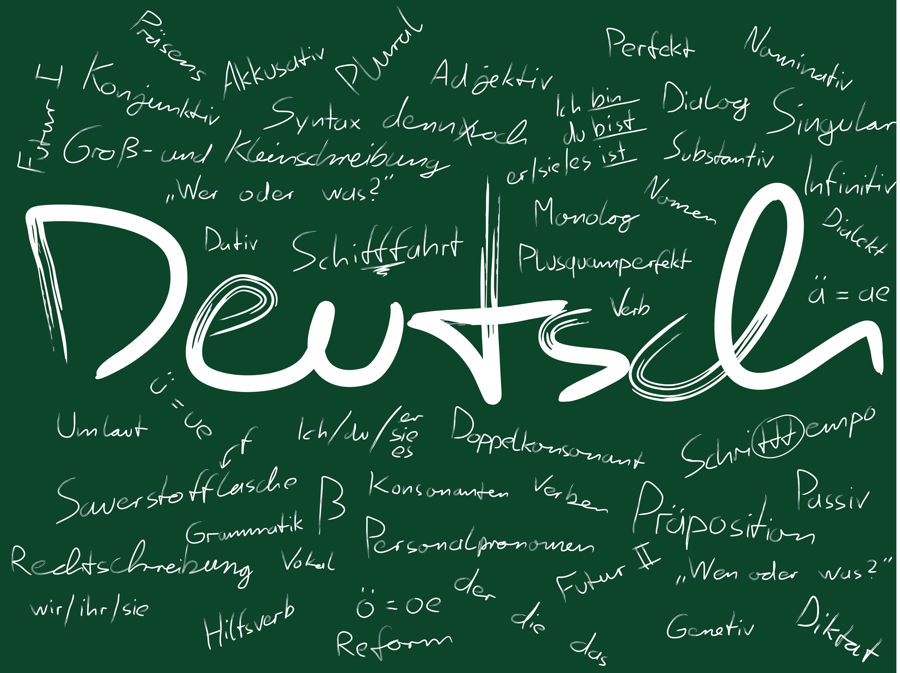 Präsens
Akkusativ
Plural
Adjektiv
Perfekt
Nominativ
4
Konjunktiv
Syntax
dennoch
Ich bin
du bist
er/sie/es ist
Dialog
Singular
Futur
Groß- und Kleinschreibung
Substantiv
„Wer oder was?“
Nomen
Infinitiv
Dativ
Schifffahrt
Monolog
Plusquamperfekt
Dialekt
Verb
ä = ae
Deutsch
ü = ue
Umlaut
Ich/du/er
sie
es
Doppelkonsonant
Schritttempo
f
Sauerstofflasche
ß
Konsonanten
Verben
Präposition
Passiv
Grammatik
Personalpronomen
Rechtschreibung
Vokal
Futur II
„Wen oder was?“
wir/ihr/sie
Hilfsverb
ö = oe
der
die
das
Reform
Genetiv
Diktat